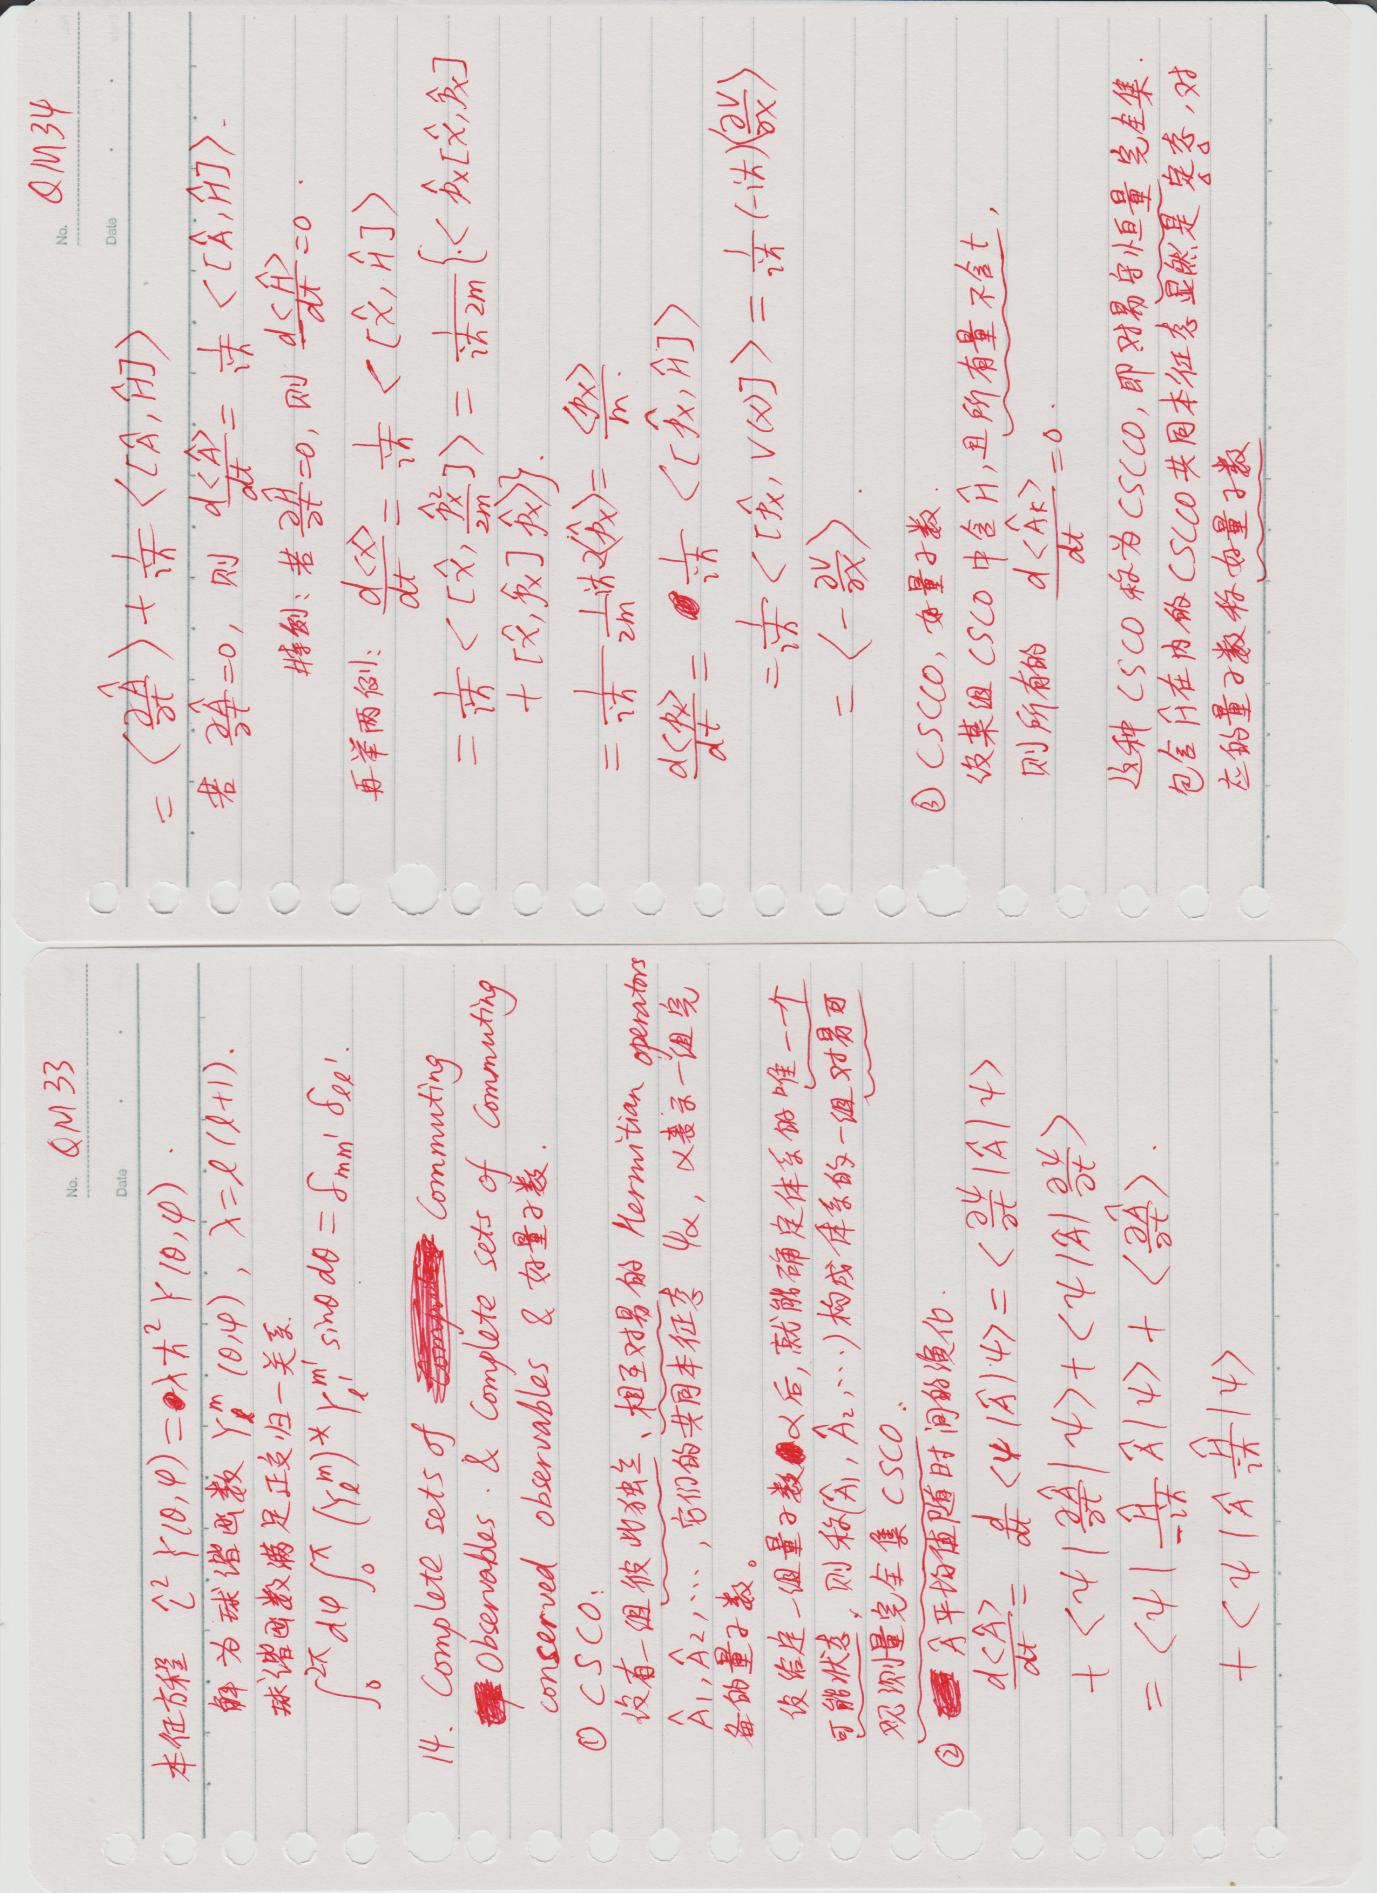 No. QM 33
Date
本征方程 l̂² Y(θ,φ) = λħ² Y(θ,φ).
解为球谐函数 Yₗᵐ(θ,φ), λ=ℓ(ℓ+1).
球谐函数满足正交归一关系.
∫₀^{2π} dφ ∫₀^π (Yₗᵐ)* Y_{ℓ'}^{m'} sinθ dθ = δ_{mm'} δ_{ℓℓ'}.
14. Complete sets of Commuting
Observables. & Complete sets of commuting
conserved observables & 好量子数.
① CSCO:
设有一组彼此独立、相互对易的 Hermitian operators
Â₁, Â₂, ..., 它们的共同本征态 ψα, α表示一组完
备的量子数。
设给定一组量子数α后, 就能确定体系的唯一个
可能状态, 则称(Â₁, Â₂, ...)构成体系的一组对易可
观测量完全集 CSCO.
② Â平均值随时间的演化.
d<Â>/dt = d/dt <ψ|Â|ψ> = <∂ψ/∂t|Â|ψ>
+ <ψ|∂Â/∂t|ψ> + <ψ|Â|∂ψ/∂t>
= <ψ|Ĥ/-iħ Â|ψ> + <∂Â/∂t>.
+ <ψ|Â Ĥ/iħ|ψ>
No. QM34
Date
= <∂Â/∂t> + 1/iħ <[Â, Ĥ]>
若 ∂Â/∂t=0, 则 d<Â>/dt = 1/iħ <[Â, Ĥ]>.
特例: 若 ∂Ĥ/∂t=0, 则 d<Ĥ>/dt=0.
再举两例: d<x>/dt = 1/iħ <[x̂, Ĥ]>
= 1/iħ <[x̂, p̂ₓ²/2m]> = 1/iħ2m {<p̂ₓ[x̂, p̂ₓ]
+ [x̂, p̂ₓ] p̂ₓ>}.
= 1/iħ 1/2m iħ2<p̂ₓ> = <pₓ>/m.
d<pₓ>/dt = 1/iħ <[p̂ₓ, Ĥ]>
= 1/iħ <[p̂ₓ, V(x)]> = 1/iħ (-iħ)<∂V/∂x>
= <-∂V/∂x>.
③ CSCCO, 好量子数.
设某组 CSCO 中含Ĥ, 且所有量不含t,
则所有的 d<Âₖ>/dt=0.
这种 CSCO 称为 CSCCO, 即对易守恒量完全集.
包含Ĥ在内的 CSCCO 共同本征态显然是定态, 对
应的量子数称好量子数